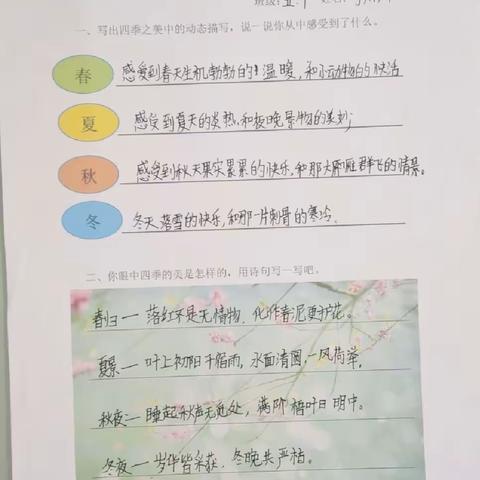 班级:五.1
一、写出四季之美中的动态描写，说一说你从中感受到了什么。
春 感受到春天生机勃勃的!温暖,和小动物的快活
夏 感受到夏天的炎热,和夜晚景物的美妙;
秋 感受到秋天果实累累的快乐,和那大雁雁群飞的情景。
冬 冬天落雪的快乐,和那一片刺骨的寒冷.
二、你眼中四季的美是怎样的，用诗句写一写吧。
春归一一 落红不是无情物.化作春泥更护花。
夏景一一 叶上初阳干宿雨，水面清圆,一风荷举,
秋夜:一一 睡起秋声无觅处，满阶梧叶月明中。
冬夜一一 岁华皆采获.冬晚共严枯。